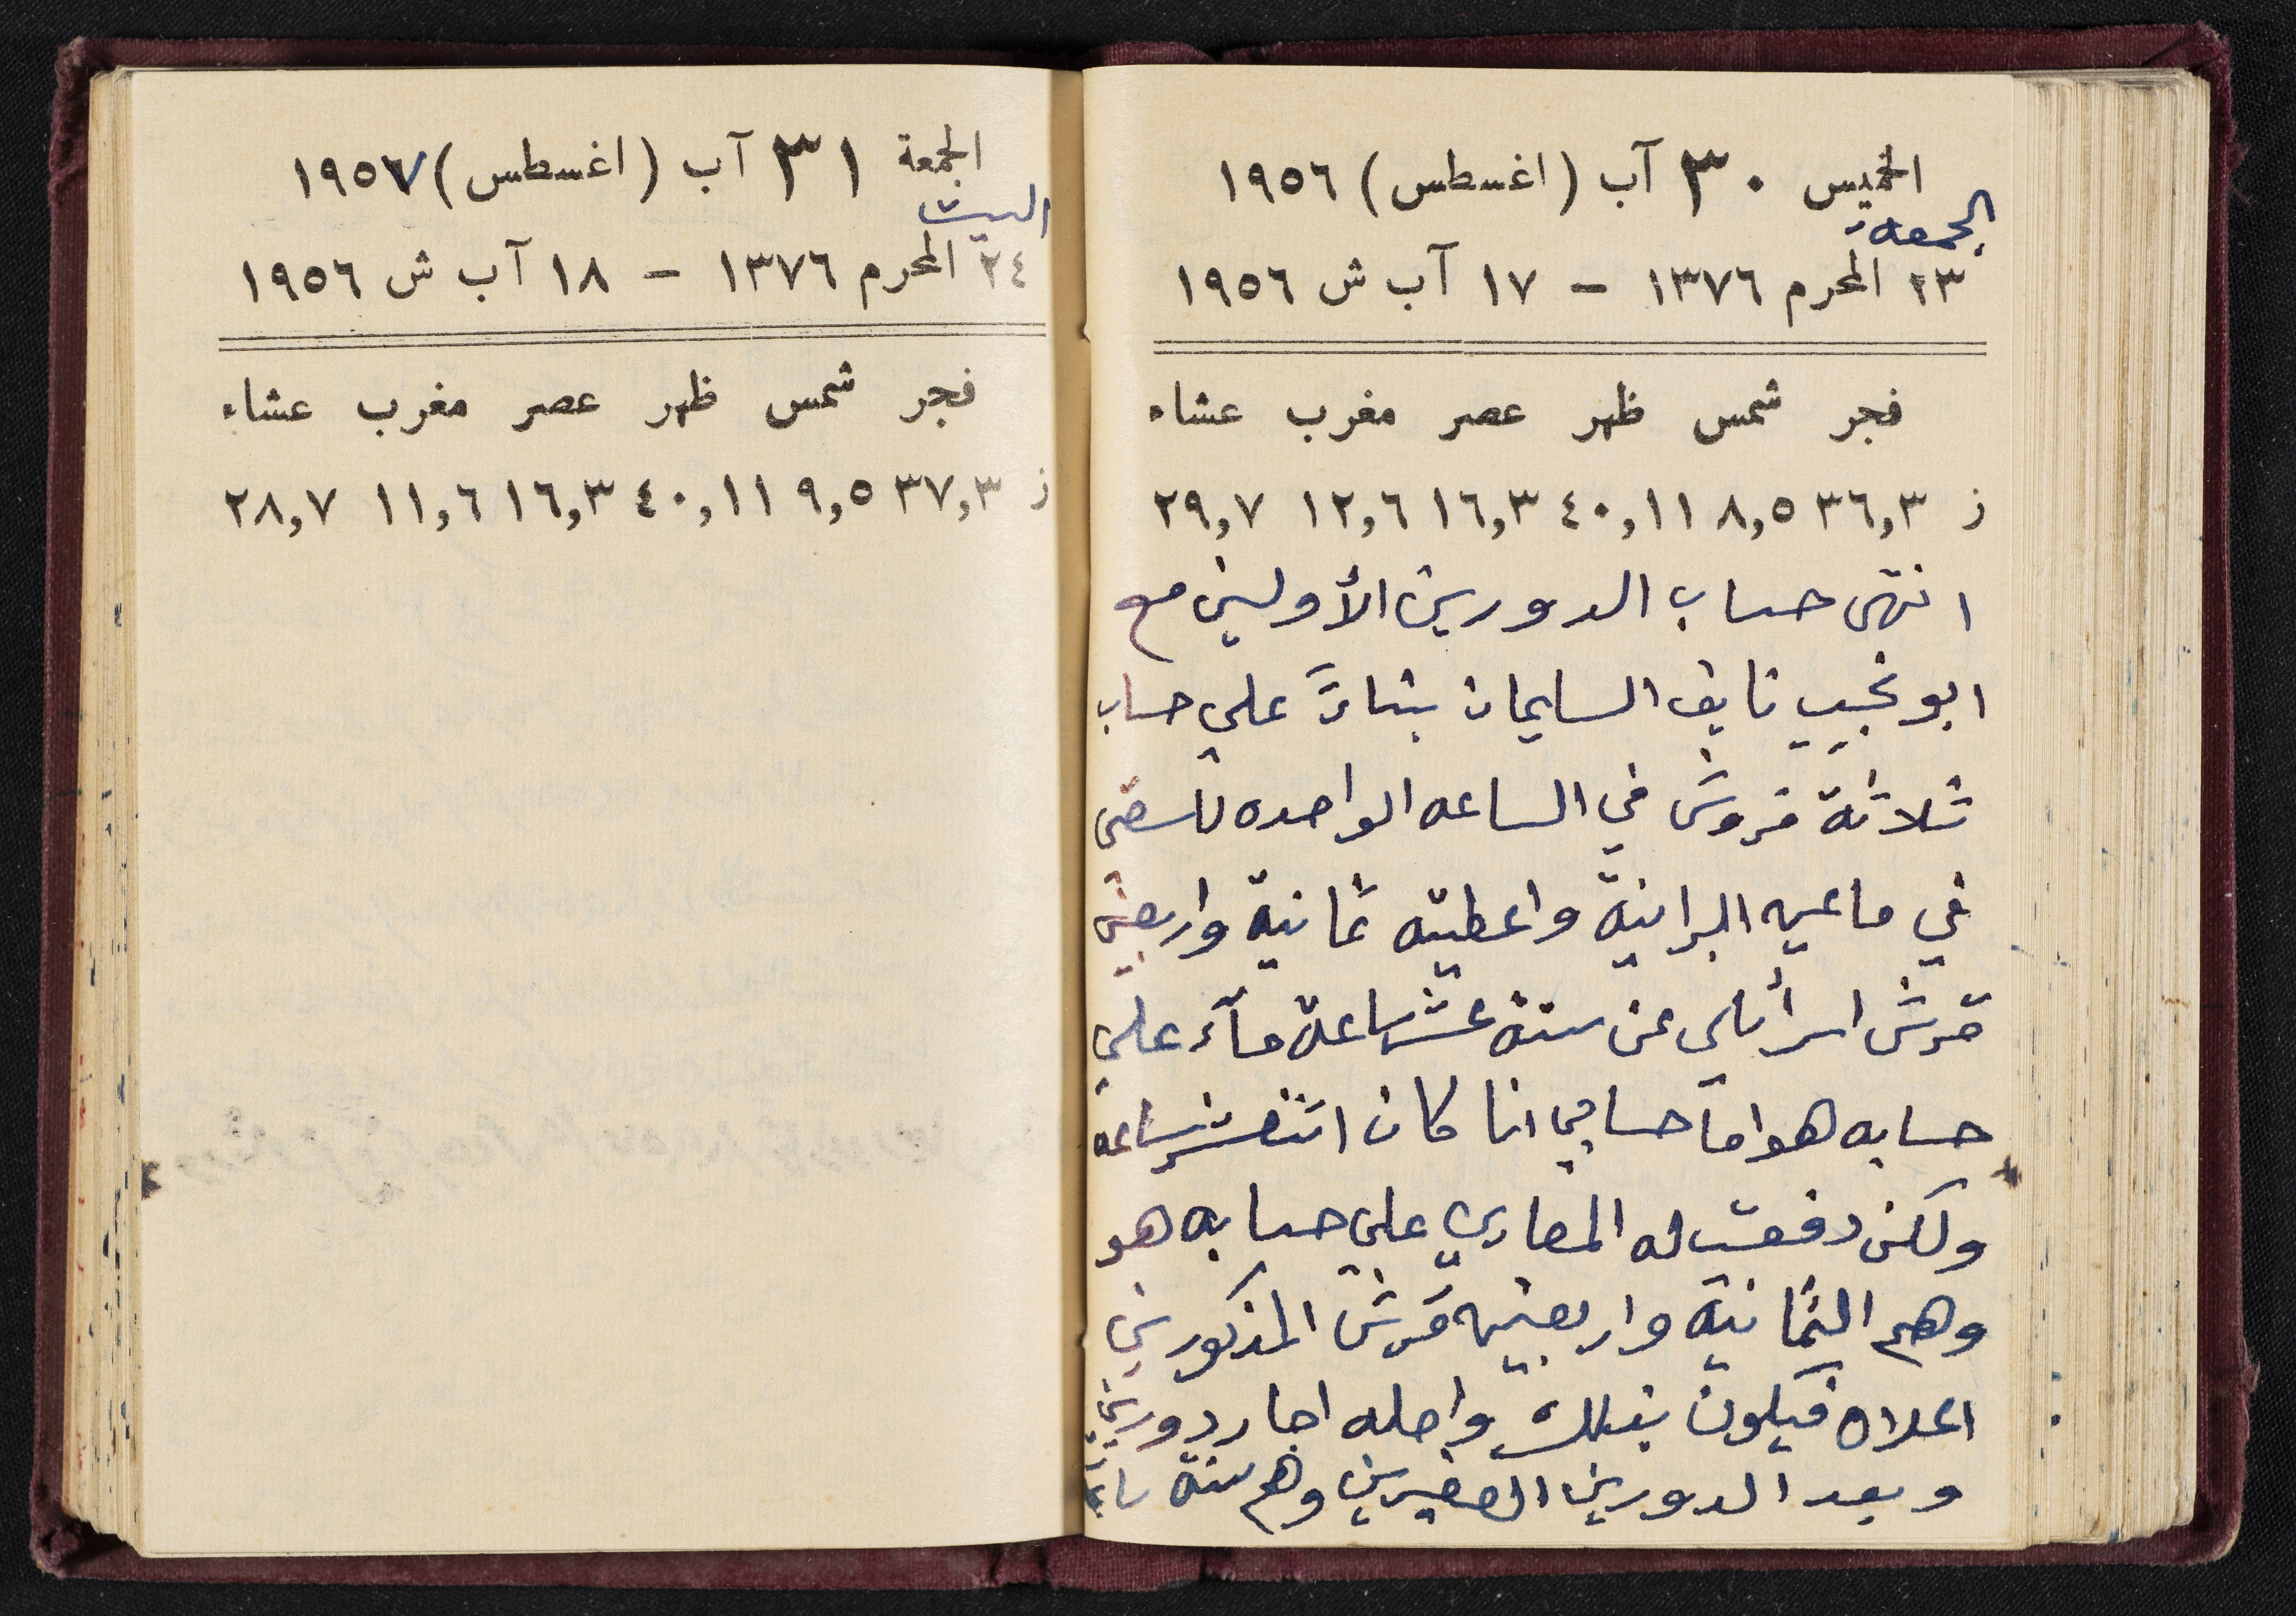 الخميس ٣٠ آب (اغسطس) ١٩٥٦
الجمعه
٢٣ المحرم ١٣٧٦ – ١٧ آب ش ١٩٥٦
فجر شمس ظهر عصر مغرب عشاء
ز ٣٦,٣ ٨,٥ ٤٠,١١ ١٦,٣ ١٢,٦ ٢٩,٧
انتهى حساب الدورين الأولين مع
ابو نجيب نايف السليمان بناءً على حساب
ثلاثة قروش في الساعه الواحده
في البرانية واعطيته ثمانية واربعين
قرش اسرائيلي عن ستة عشر ساعة ماء على
حسابه هو اما حسابي انا كان اثنعشر ساعه
ولكن دفعت له المصاري على حسابه هو
وهم الثمانية واربعين قرش المذكورين
اعلاه فيكون واصله اجار دورين
وبعد الدورين الصغيرين وهم ستة
الجمعة ٣١ آب (اغسطس) ١٩٥٧
السبت
٢٤ المحرم ١٣٧٦ – ١٨ آب ش ١٩٥٦
فجر شمس ظهر عصر مغرب عشاء
ز ٣٧,٣ ٩,٥ ٤٠,١١ ١٦,٣ ١١,٦ ٢٨,٧